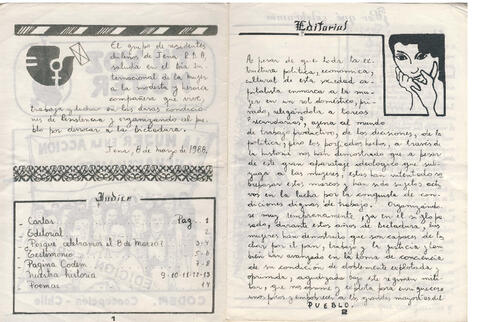 El grupo de residentes
chilenos de Jena R.D.A.
saluda en el Día In-
ternacional de la Mujer
a la modesta y heroica
compañera que vive,
trabaja y lucha en las duras condicio-
nes de la resistencia y organizando al pue-
blo por derrocar a la dictadura.
Jena, 8 de marzo de 1988.
Indice Pag.
Cartas 1
Editorial 2
Porque celebramos el 8 de Marzo? 3-4
Testimonio 5-6
Pagina Codem 7-8
Nuestra historia 9-10-11-12-13
Poemas 14
1
Editorial
A pesar de que toda la es-
tructura política, económica,
cultural de esta sociedad ca-
pitalista enmarca a la mu-
jer en un rol doméstico, pri-
vado, relegándola a tareas
"secundarias", ajena al mundo
de trabajo productivo, de las decisiones, de la
política; pero los porfiados hechos, a través de
la historia nos han demostrado que a pesar
de este gran aparataje ideologico que sub-
yuga a las mujeres, estas han intentado so-
brepasar estos marcos y han sido sujetos acti-
vos en la lucha por la conquista de condi-
ciones dignas de trabajo. Organizando-
se muy tempranamente, ya en el siglo pa-
sado, durante estos años de dictadura, las
mujeres han demostrado que son capaces de lu-
char por el pan, trabajo y la justicia y tam-
bien han avanzado en la toma de conciencia
de su condición de doblemente explotada y
oprimida, agudizada bajo este regimen mili-
tar, que nos oprime y explota para enriquecer
unos pocos y empobrecer a las grandes mayorías del
PUEBLO.
2